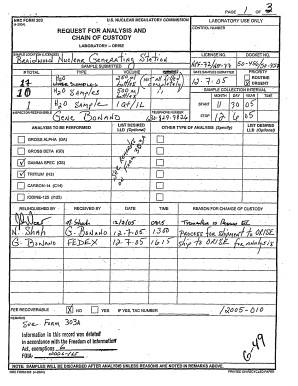 PAGE 1 OF 3
NRC FORM 303
U.S. NUCLEAR REGULATORY COMMISSION
LABORATORY USE ONLY
REQUEST FOR ANALYSIS AND
CHAIN OF CUSTODY
LABORATORY – ORISE
CONTROL NUMBER
LICENSE NO.
DOCKET NO.
Braidwood Nuclear Generating Station
NPF-72/NPF-77
SAMPLE SUBMITTED
DATE SAMPLES SUBMITTED
PRIORITY
# TOTAL
TYPE
VOLUME
12.7.05
ROUTINE
URGENT
17
H2O
10
H2O Samples
500 ml
SAMPLE COLLECTION INTERVAL
MONTH DAY YEAR TIME
1
H2O Sample
1 Qt/1L
START 11 30 05
STOP 12 6 05
INSPECTOR RESPONSIBLE
Gene Bonano
TELEPHONE NUMBER
630.829.9824
ANALYSIS TO BE PERFORMED
LIST DESIRED LLD (Optional)
OTHER TYPE OF ANALYSIS (Specify)
LIST DESIRED LLD (Optional)
GROSS ALPHA (GA)
GROSS BETA (GB)
GAMMA SPEC (GS)
TRITIUM (H3)
CARBON-14 (C14)
IODINE-125 (I125)
RELINQUISHED BY
RECEIVED BY
DATE
TIME
REASON FOR CHANGE OF CUSTODY
N. Shah
12/2/05
0915
N. Shah
G. Bonano
12.7.05
1300
Process for shipment to ORISE
G. Bonano
FEDEX
12-7.05
1615
ship to ORISE for analysis
FEE RECOVERABLE
NO
YES
IF YES, TAC NUMBER
/2005-010
REMARKS
See Form 303A
Information in this record was deleted
in accordance with the Freedom of Information
Act, exemptions 6
FOIA-
649
NOTE: SAMPLES WILL BE DISCARDED AFTER ANALYSIS UNLESS REASONS ARE NOTED IN REMARKS ABOVE.
NRC FORM 303
PRINTED ON RECYCLED PAPER